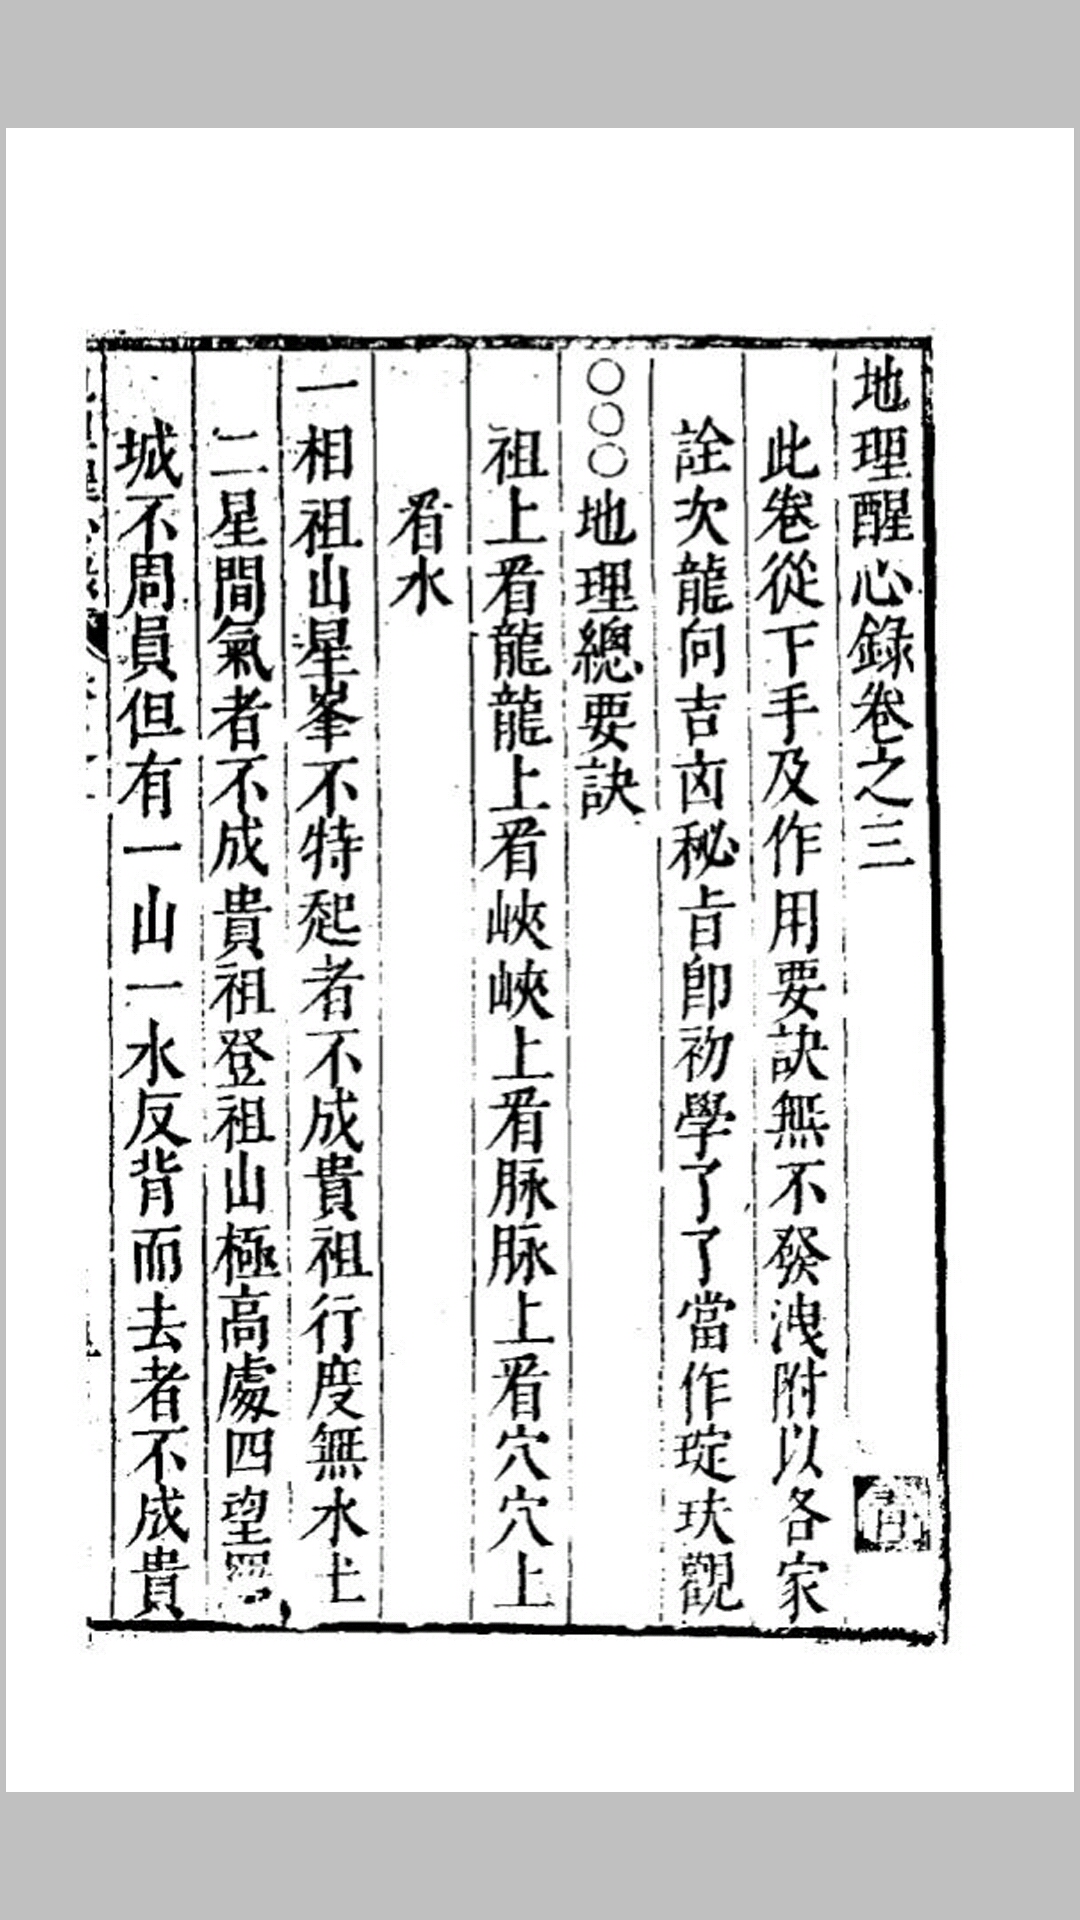 地理醒心錄卷之三
此卷從下手及作用要訣無不發洩附以各家
詮次龍向吉凶秘旨卽初學了了當作琁玞觀
○○○地理總要訣
祖上看龍龍上看峽峽上看脉脉上看穴穴上
看水
一相祖山星峯不特起者不成貴祖行度無水土
二星間氣者不成貴祖登祖山極高處四望羅
城不周員但有一山一水反背而去者不成貴